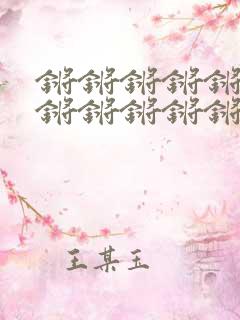 锵锵锵锵锵
锵锵锵锵锵
王某玉